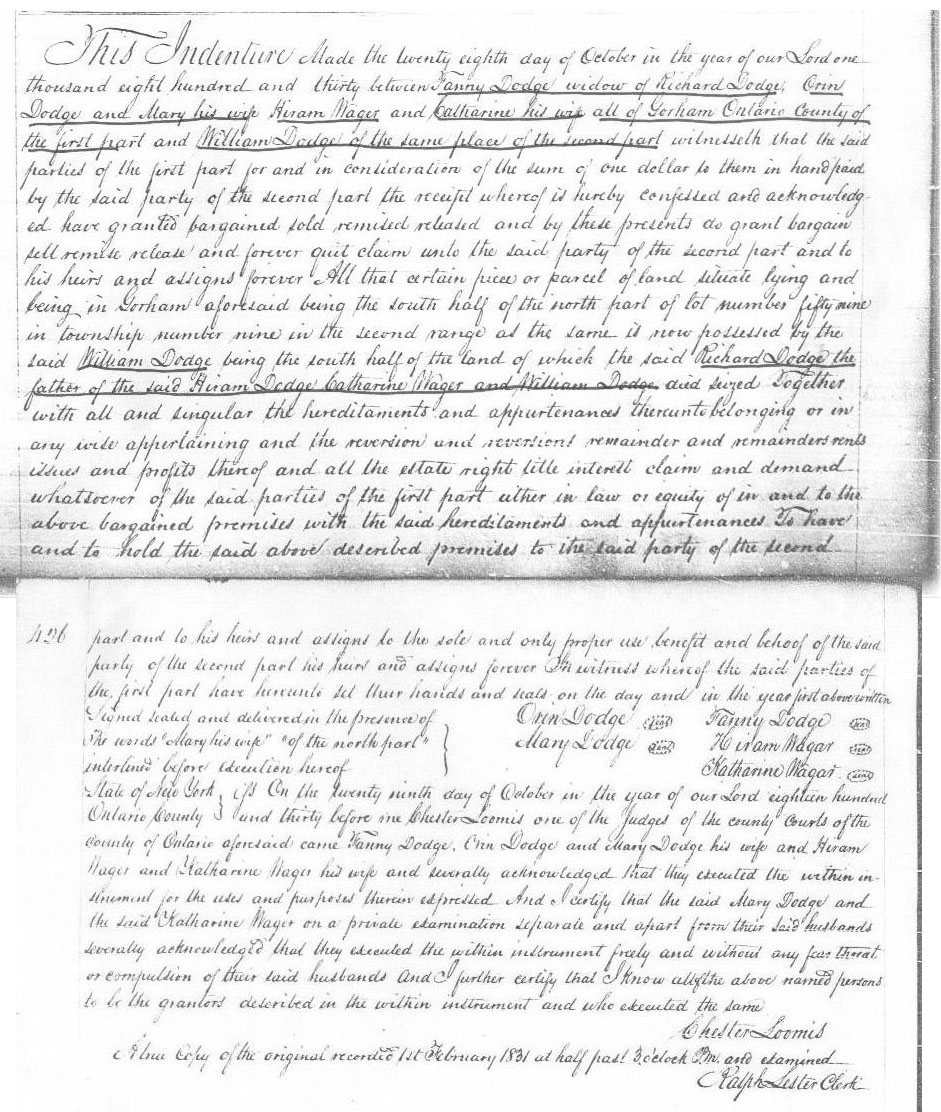 This Indenture Made the twenty eighth day of October in the year of our Lord one
thousand eight hundred and thirty between Fanny Dodge widow of Richard Dodge, Orin
Dodge and Mary his wife Hiram Wager and Catharine his wife all of Gorham Ontario County of
the first part and William Dodge of the same place of the second part witnesseth that the said
parties of the first part for and in consideration of the sum of one dollar to them in hand paid
by the said party of the second part the receipt whereof is hereby confessed and acknowledg-
ed have granted bargained sold remised released and by these presents do grant bargain
sell remise release and forever quit claim unto the said party of the second part and to
his heirs and assigns forever All that certain piece or parcel of land situate lying and
being in Gorham aforesaid being the south half of the north part of lot number fifty nine
in township number nine in the second range as the same is now possessed by the
said William Dodge being the south half of the land of which the said Richard Dodge the
father of the said Hiram Dodge Catharine Wager and William Dodge died seized Together
with all and singular the hereditaments and appurtenances thereunto belonging or in
any wise appertaining and the reversion and reversions remainder and remainders rents
issues and profits thereof and all the estate right title interest claim and demand
whatsoever of the said parties of the first part either in law or equity of in and to the
above bargained premises with the said hereditaments and appurtenances To have
and to hold the said above described premises to the said party of the second
426 part and to his heirs and assigns to the sole and only proper use benefit and behoof of the said
party of the second part his heirs and assigns forever In witness whereof the said parties of
the first part have hereunto set their hands and seals on the day and in the year first above written
Signed sealed and delivered in the presence of Orin Dodge seal Fanny Dodge seal
The words "Mary his wife" "of the north part" Mary Dodge seal Hiram Wagar seal
interlined before execution hereof Katharine Wagar seal
State of New York } ss On the twenty ninth day of October in the year of our Lord eighteen hundred
Ontario County } and thirty before me Chester Loomis one of the Judges of the county Courts of the
County of Ontario aforesaid came Fanny Dodge, Orin Dodge and Mary Dodge his wife and Hiram
Wager and Katharine Wager his wife and severally acknowledged that they executed the within in-
strument for the uses and purposes therein expressed And I certify that the said Mary Dodge and
the said Katharine Wager on a private examination separate and apart from their said husbands
severally acknowledged that they executed the within instrument freely and without any fear threat
or compulsion of their said husbands And I further certify that I know all of the above named persons
to be the grantors described in the within instrument and who executed the same
Chester Loomis
A true Copy of the original recorded 1st February 1831 at half past 3 o'clock P.M. and examined
Ralph Lester Clerk